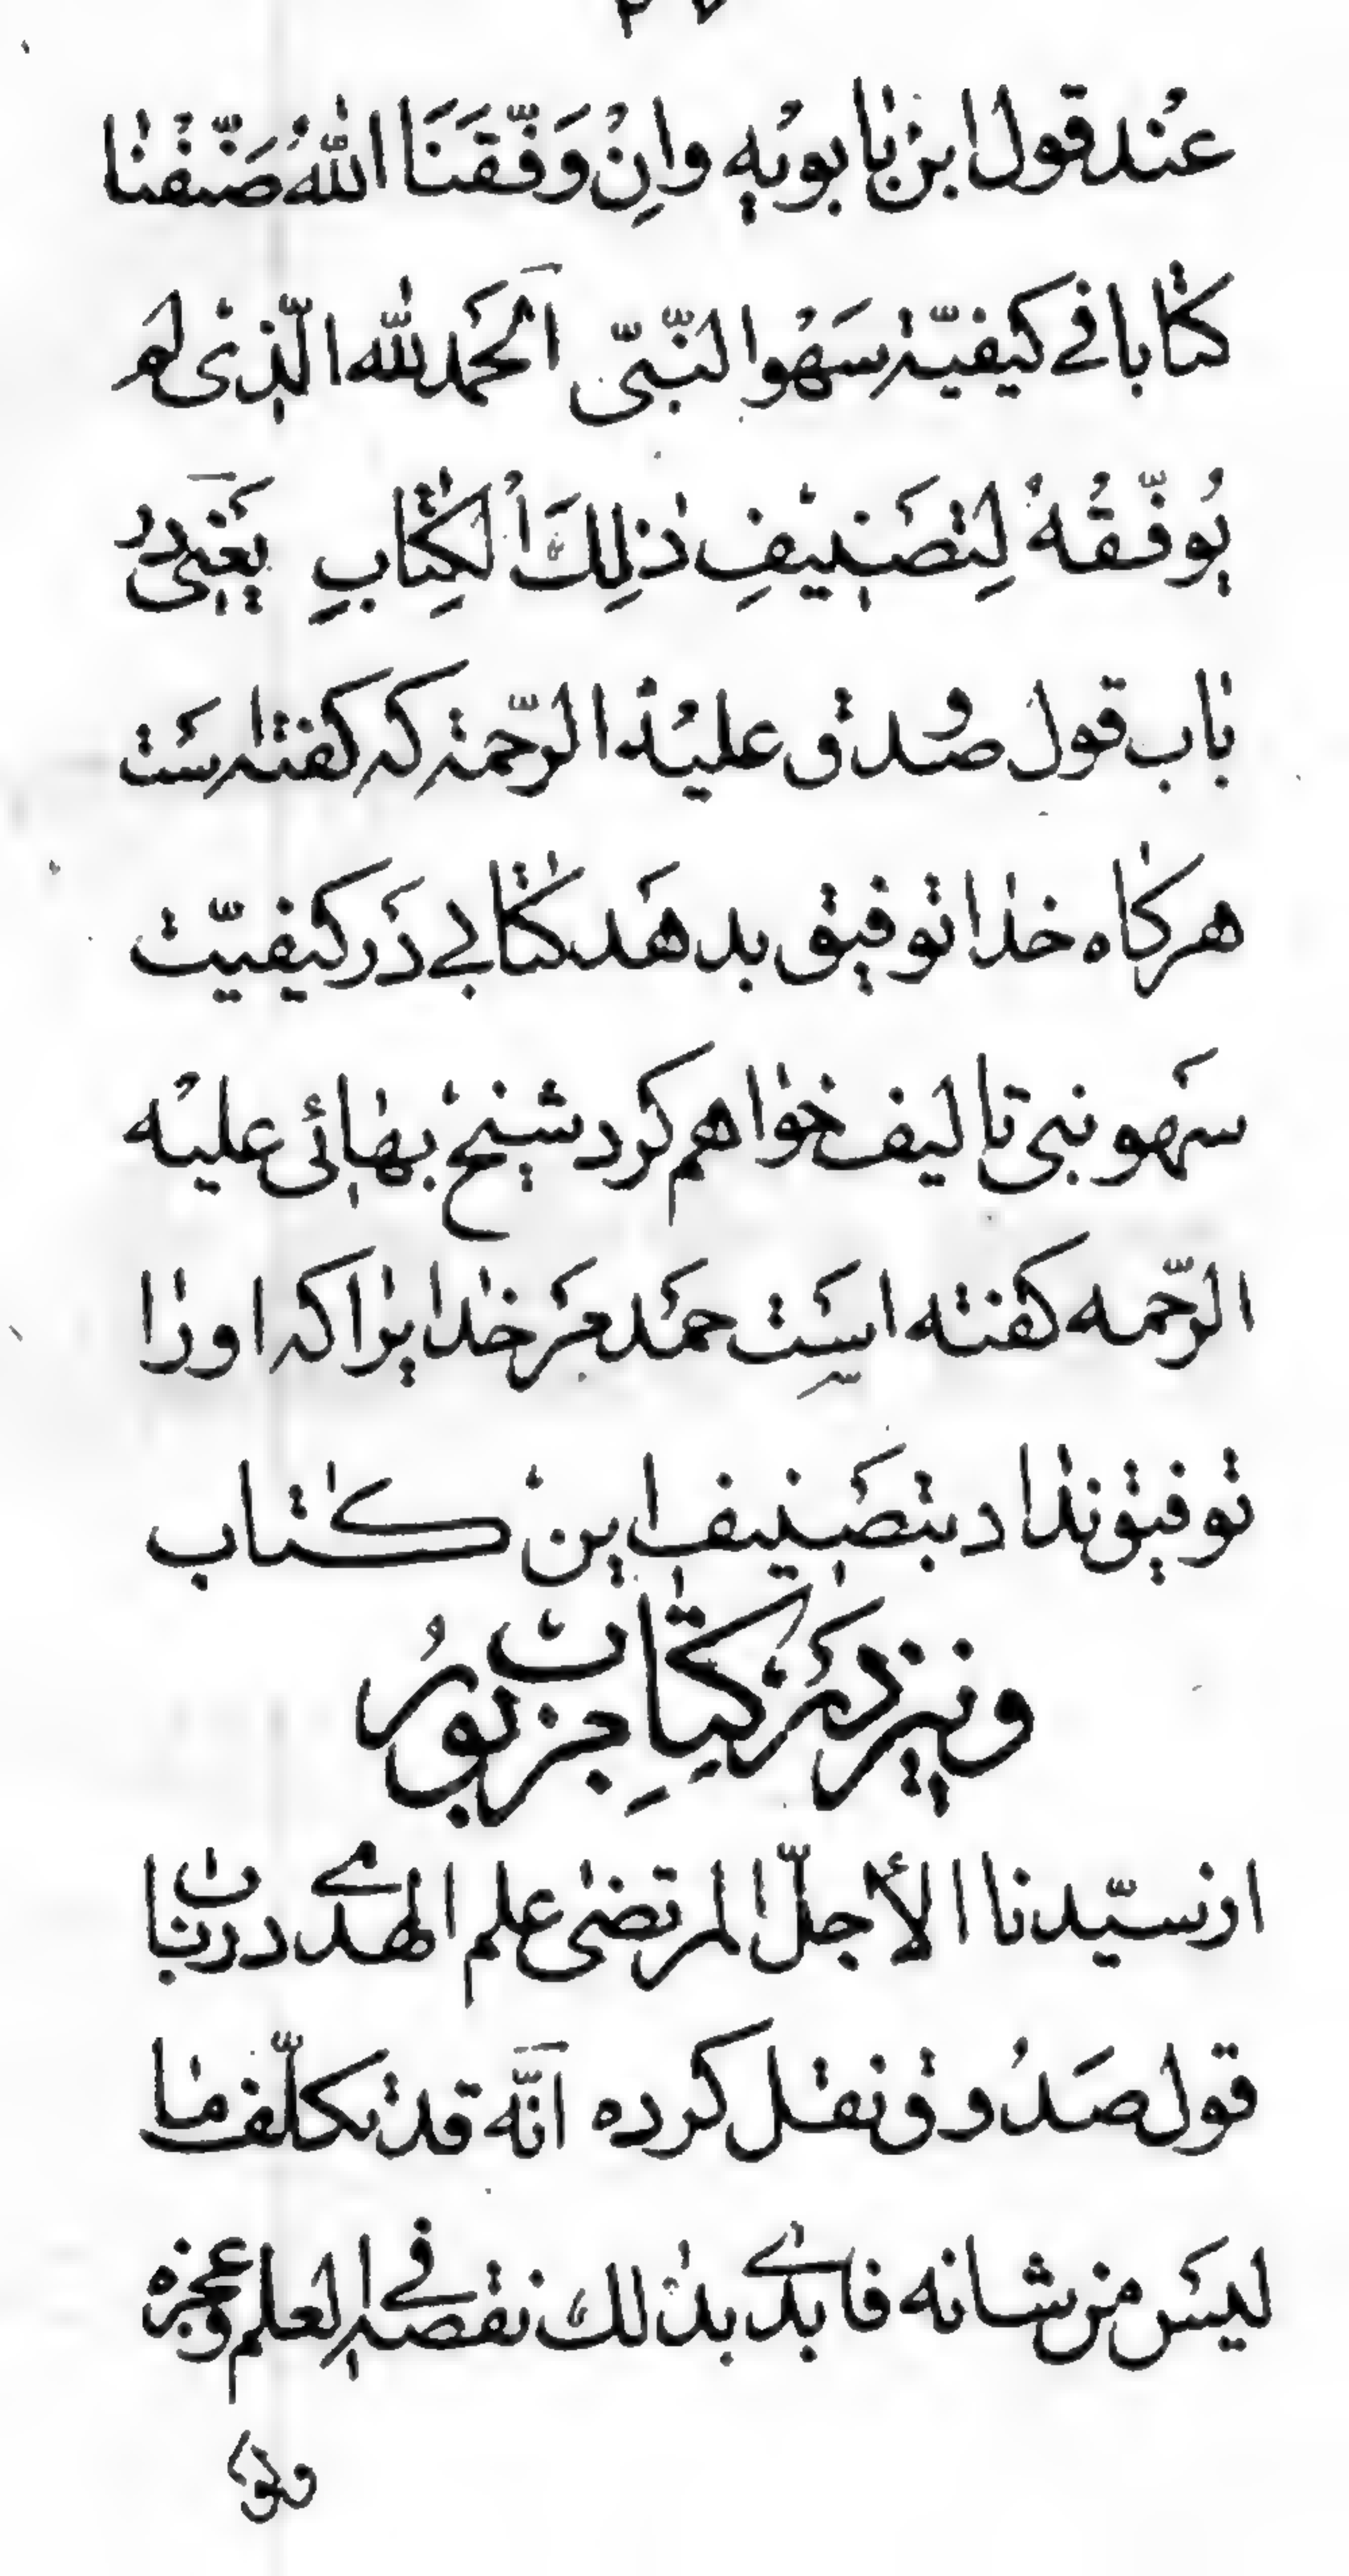 عند قول ابن بابویه وانْ وَفَّقَنَا اللهُ صَنَّفْنا
کتابا فی کیفیّة سَهْو النّبیّ الحَمد للّه الّذی لم
یُوفّقْهُ لِتصَنیفِ ذٰلِكَ الْکِتابِ یَعْنی در
باب قول صدوق علیه الرّحمة که کفته ست
هرکاه خدا توفیق بدهَد کتابی دَر کیفیّت
سَهو نبی تالیف خواهم کرد شیخ بهائی علیه
الرّحمه کفته است حمَد مَر خدایرا که اورا
توفیق نداد بتصَنیف این کتاب
ونیز دَر کتابِ مزبورُ
از سیّدنا الأجلّ المرتضی علم الهدی در باب
قول صَدُوق نقل کرده انَّه قد تکلّف ما
لیسَ من شانه فابدی بذلك نقصه فی العلم وعجزه